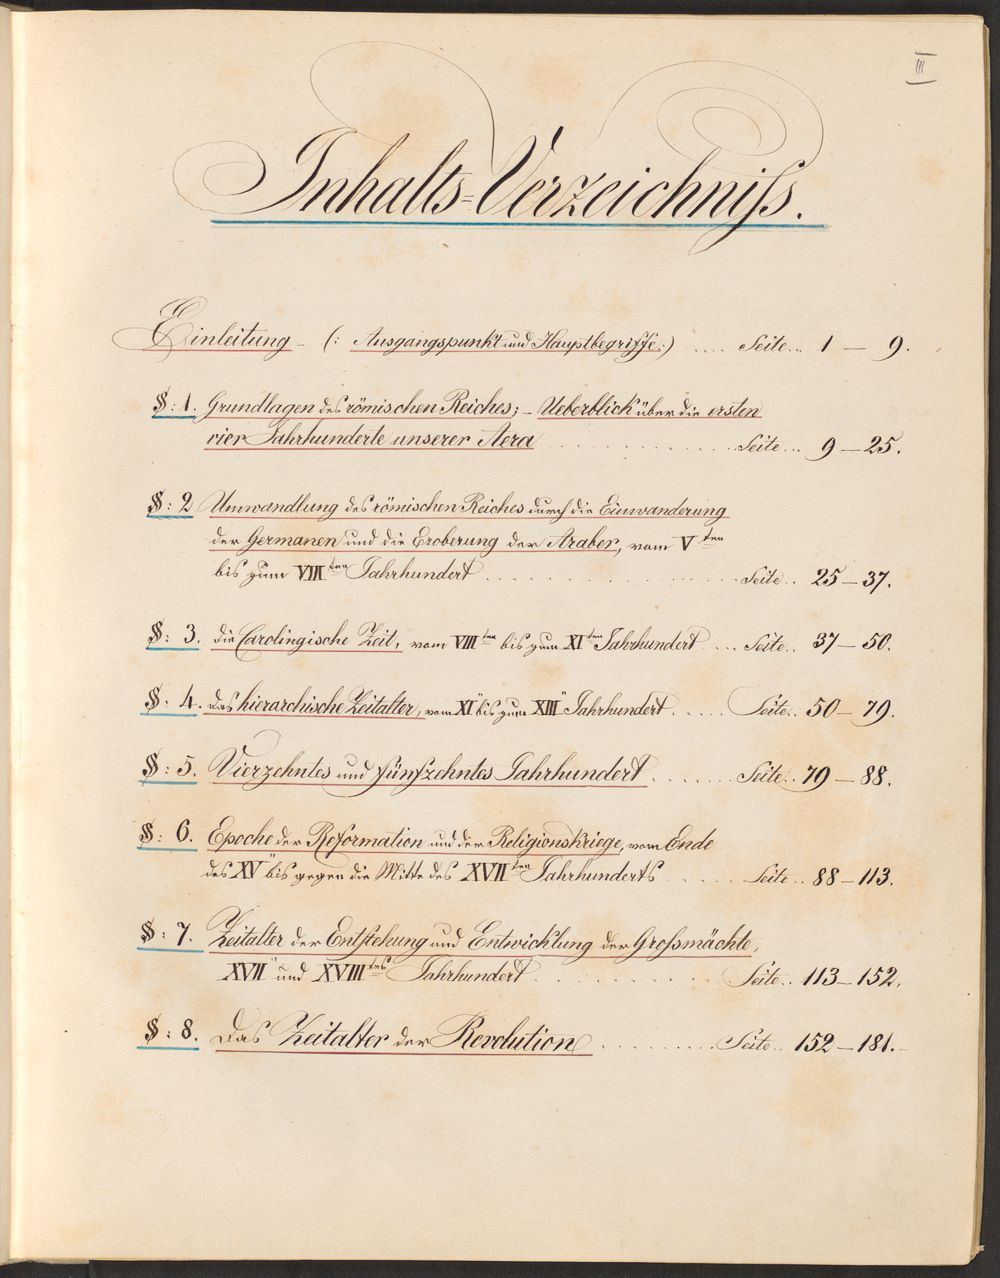 III
Inhalts=Verzeichniß.
Einleitung – (: Ausgangspunkt und Hauptbegriffe :) .... Seite... 1 — 9.
§: 1. Grundlagen des römischen Reiches; – Ueberblick über die ersten
vier Jahrhunderte unserer Aera . . . . . . . . . . Seite... 9 — 25.
§: 2 Umwandlung des römischen Reiches durch die Einwanderung
der Germanen und die Eroberung der Araber, vom V ten
bis zum VIII ten Jahrhundert . . . . . . . . . . . . . . . Seite.. 25 — 37.
§: 3. die Carolingische Zeit, vom VIII ten bis zum XI ten Jahrhundert ... Seite.. 37 — 50.
§: 4. das hierarchische Zeitalter, vom XI" bis zum XIII" Jahrhundert . . . . . Seite.. 50 — 79.
§: 5. Vierzehntes und fünfzehntes Jahrhundert . . . . . . . Seite.. 79 — 88.
§: 6. Epoche der Reformation und der Religionskriege, vom Ende
des XV" bis gegen die Mitte des XVII ten Jahrhunderts . . . . . . Seite.. 88 — 113.
§: 7. Zeitalter der Entstehung und Entwicklung der Großmächte,
XVII" und XVIII tes Jahrhundert . . . . . . . . . . Seite.. 113 — 152.
§: 8. Das Zeitalter der Revolution . . . . . . . . . Seite.. 152 — 181.–